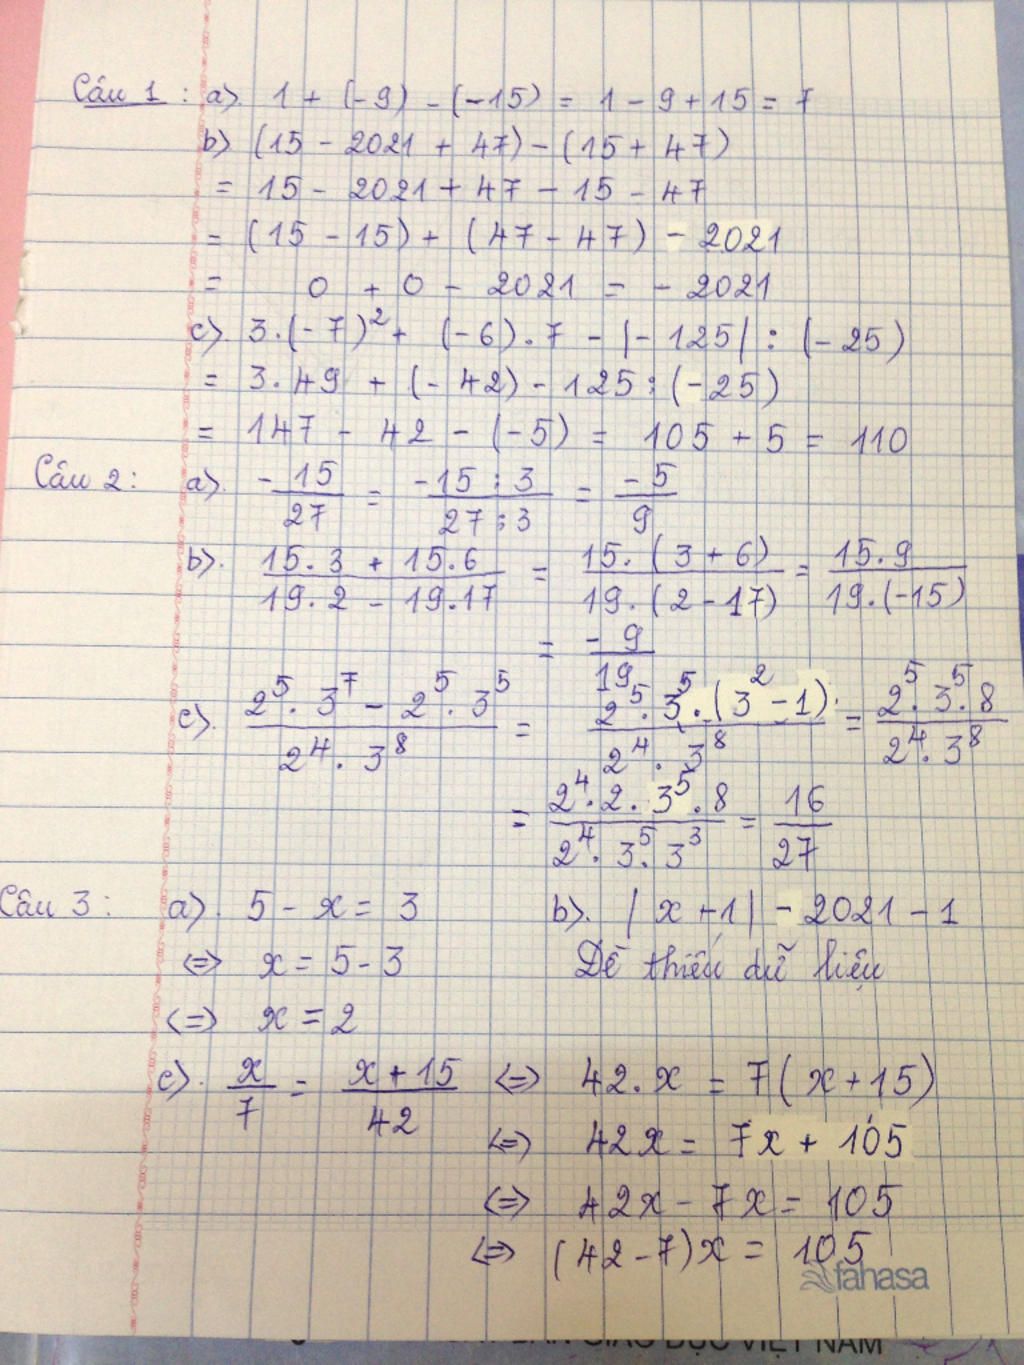 Câu 1 : a). 1 + (-9) - (-15) = 1 - 9 + 15 = 7
b) (15 - 2021 + 47) - (15 + 47)
= 15 - 2021 + 47 - 15 - 47
= (15 - 15) + (47 - 47) - 2021
= 0 + 0 - 2021 = - 2021
c). 3.(-7)² + (-6).7 - |-125| : (-25)
= 3.49 + (-42) - 125 : (-25)
= 147 - 42 - (-5) = 105 + 5 = 110
Câu 2 : a). -15/27 = (-15 : 3)/(27 : 3) = -5/9
b). (15.3 + 15.6)/(19.2 - 19.17) = (15.(3 + 6))/(19.(2 - 17)) = (15.9)/(19.(-15))
= -9/19
c). (2⁵.3⁷ - 2⁵.3⁵)/(2⁴.3⁸) = (2⁵.3⁵.(3² - 1))/(2⁴.3⁸) = (2⁵.3⁵.8)/(2⁴.3⁸)
= (2⁴.2.3⁵.8)/(2⁴.3⁵.3³) = 16/27
Câu 3 : a). 5 - x = 3 b). |x + 1| - 2021 - 1
<=> x = 5 - 3 Đề thiếu dữ liệu
<=> x = 2
c). x/7 = (x + 15)/42 <=> 42.x = 7(x + 15)
<=> 42x = 7x + 105
<=> 42x - 7x = 105
<=> (42 - 7)x = 105
fahasa
GIÁO DỤC VIỆT NAM